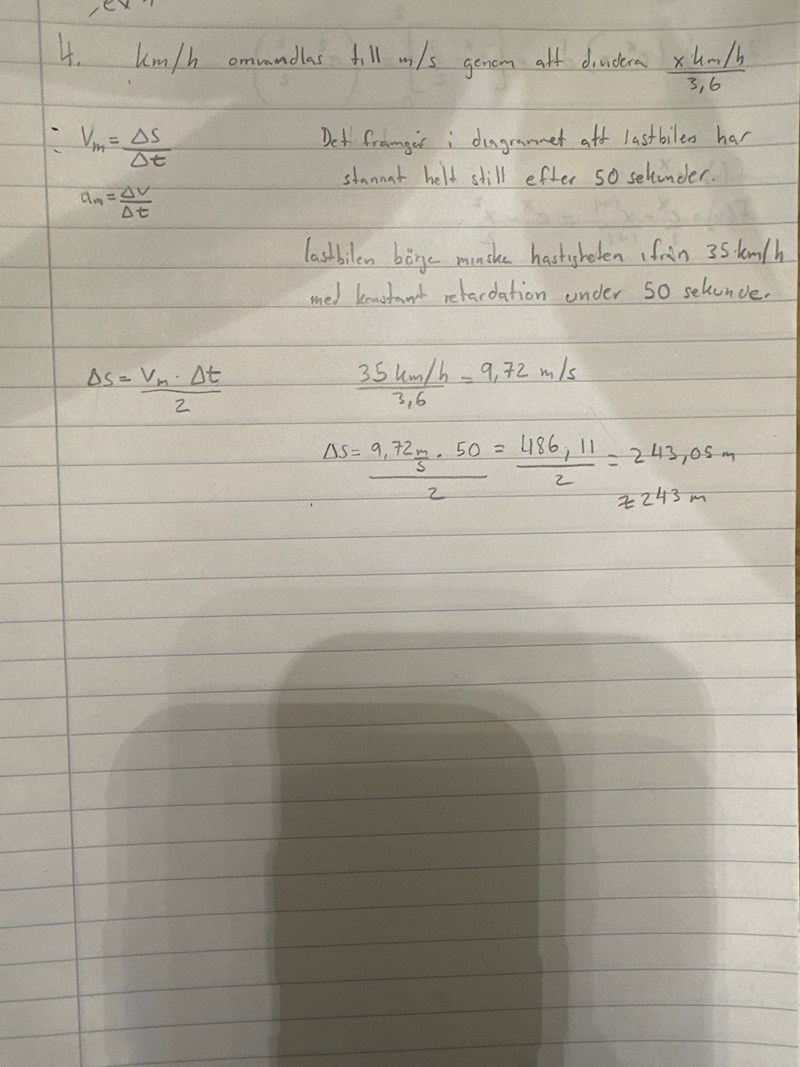 4. km/h omvandlas till m/s genom att dividera x km/h / 3,6
: Vm = ΔS / Δt
Det framgår i diagrammet att lastbilen har
stannat helt still efter 50 sekunder.
am = ΔV / Δt
lastbilen börje minska hastigheten ifrån 35 km/h
med konstant retardation under 50 sekunde.
ΔS = Vm · Δt / 2
35 km/h / 3,6 = 9,72 m/s
ΔS = 9,72 m/s · 50 / 2 = 486,11 / 2 = 243,05 m
≈ 243 m